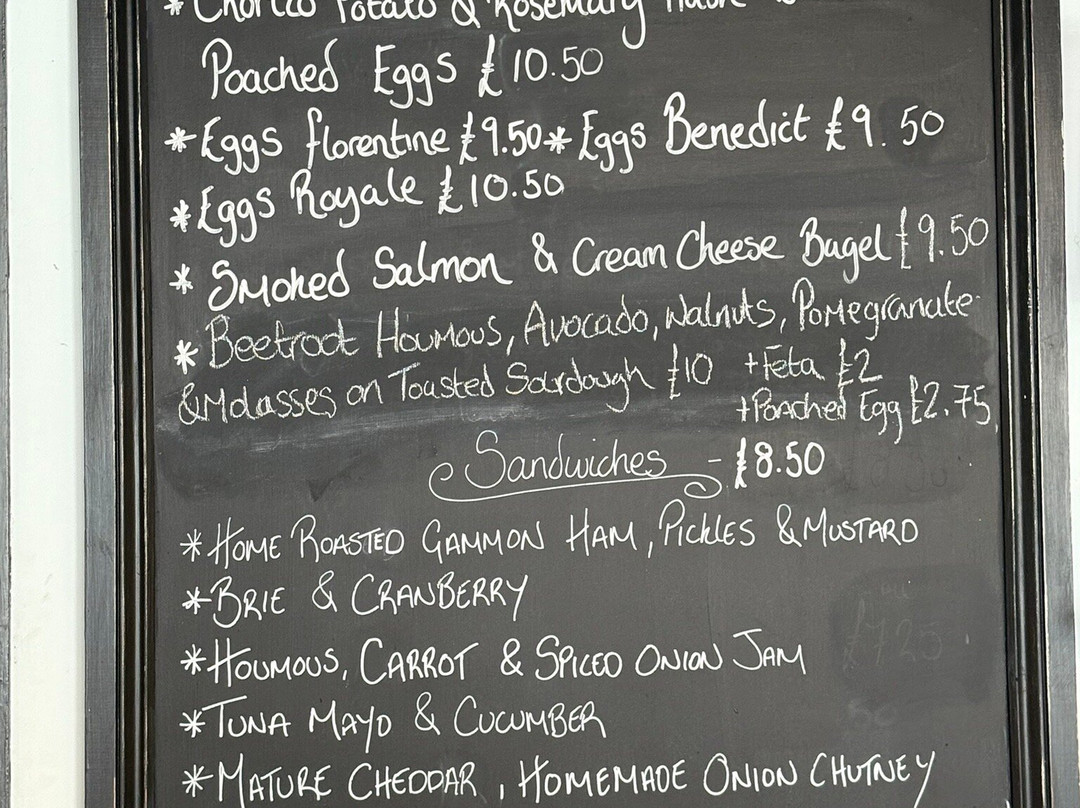 * Chorizo Potato & Rosemary Hash
Poached Eggs £10.50
*Eggs florentine £9.50 * Eggs Benedict £9.50
*Eggs Royale £10.50
* Smoked Salmon & Cream Cheese Bagel £9.50
* Beetroot Houmous, Avocado, Walnuts, Pomegranate
& Molasses on Toasted Sourdough £10 +Feta £2
+Poached Egg £2.75
Sandwiches - £8.50
*HOME ROASTED GAMMON HAM, PICKLES & MUSTARD
*BRIE & CRANBERRY
*HOUMOUS, CARROT & SPICED ONION JAM
*TUNA MAYO & CUCUMBER
*MATURE CHEDDAR, HOMEMADE ONION CHUTNEY